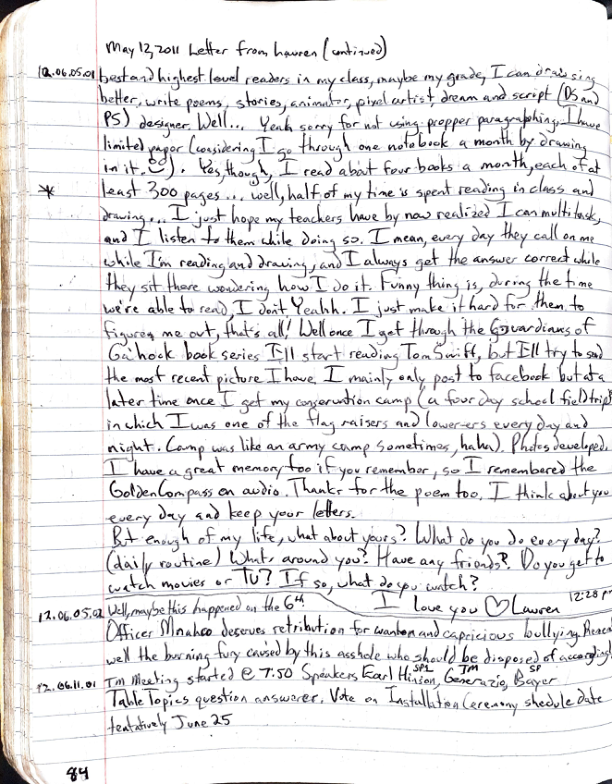 May 12, 2011 Letter from Lauren (continued)
12.06.05.01 best and highest level readers in my class, maybe my grade, I can draw, sing
better, write poems, stories, animator, pixel artist, dream and script (DS and
PS) designer. Well... Yeah sorry for not using propper paragraphing. I have
limited paper (considering I go through one notebook a month by drawing
in it.). Yes, though, I read about four books a month, each of at
* least 300 pages... well, half of my time is spent reading in class and
drawing... I just hope my teachers have by now realized I can multitask,
and I listen to them while doing so. I mean, every day they call on me
while I'm reading and drawing, and I always get the answer correct while
they sit there wondering how I do it. Funny thing is, during the time
we're able to read, I don't. Yeahh. I just make it hard for them to
figure me out, that's all! Well once I get through the Guardians of
Ga'hoole book series I'll start reading Tom Swift, but I'll try to send
the most recent picture I have. I mainly only post to facebook but at a
later time once I get my conservation camp (a four day school field trip)
in which I was one of the flag raisers and lowerers every day and
night. Camp was like an army camp sometimes, haha). Photos developed.
I have a great memory too if you remember, so I remembered the
Golden Compass on audio. Thanks for the poem too. I think about you
every day and keep your letters.
But enough of my life, what about yours? What do you do every day?
(daily routine) What's around you? Have any friends? Do you get to
watch movies or TV? If so, what do you watch?
I love you ♡ Lauren 12:28 pm
12.06.05.02 Well, maybe this happened on the 6th
Officer deserves retribution for wanton and capricious bullying.
well the burning fury caused by this asshole who should be disposed of accordingly.
12.06.11.01 TM Meeting started @ 7:50 Speakers Earl Hinson, SP1 Generazio, TM Bayer SP
Table Topics question answerer. Vote on Installation Ceremony shedule Date
tentatively June 25
84